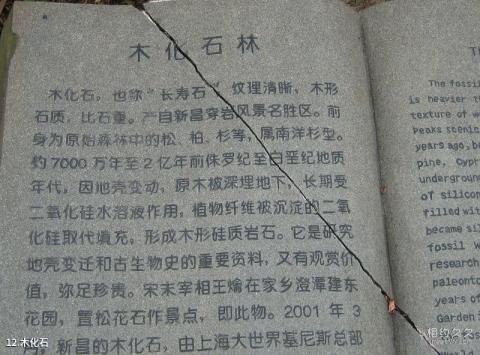 木化石林
木化石，也称“长寿石”，纹理清晰，木形
石质，比石重。产自新昌穿岩风景名胜区。前
身为原始森林中的松、柏、杉等，属南洋杉型。
约7000万年至2亿年前侏罗纪至白垩纪地质
年代，因地壳变动，原木被深埋地下，长期受
二氧化硅水溶液作用，植物纤维被沉淀的二氧
化硅取代填充，形成木形硅质岩石。它是研究
地壳变迁和古生物史的重要资料，又有观赏价
值，弥足珍贵。宋末宰相王爚在家乡澄潭建东
花园，置松花石作景点，即此物。2001年3
月，新昌的木化石，由上海大世界基尼斯总部
The fossil
is heavier th
texture of w
Peaks Scenic
years ago, b
pine, Cypr
underground
of silicon
filled wit
became sil
fossil w
research
paleonto
years of
Garden i
World
12 木化石
相约久久